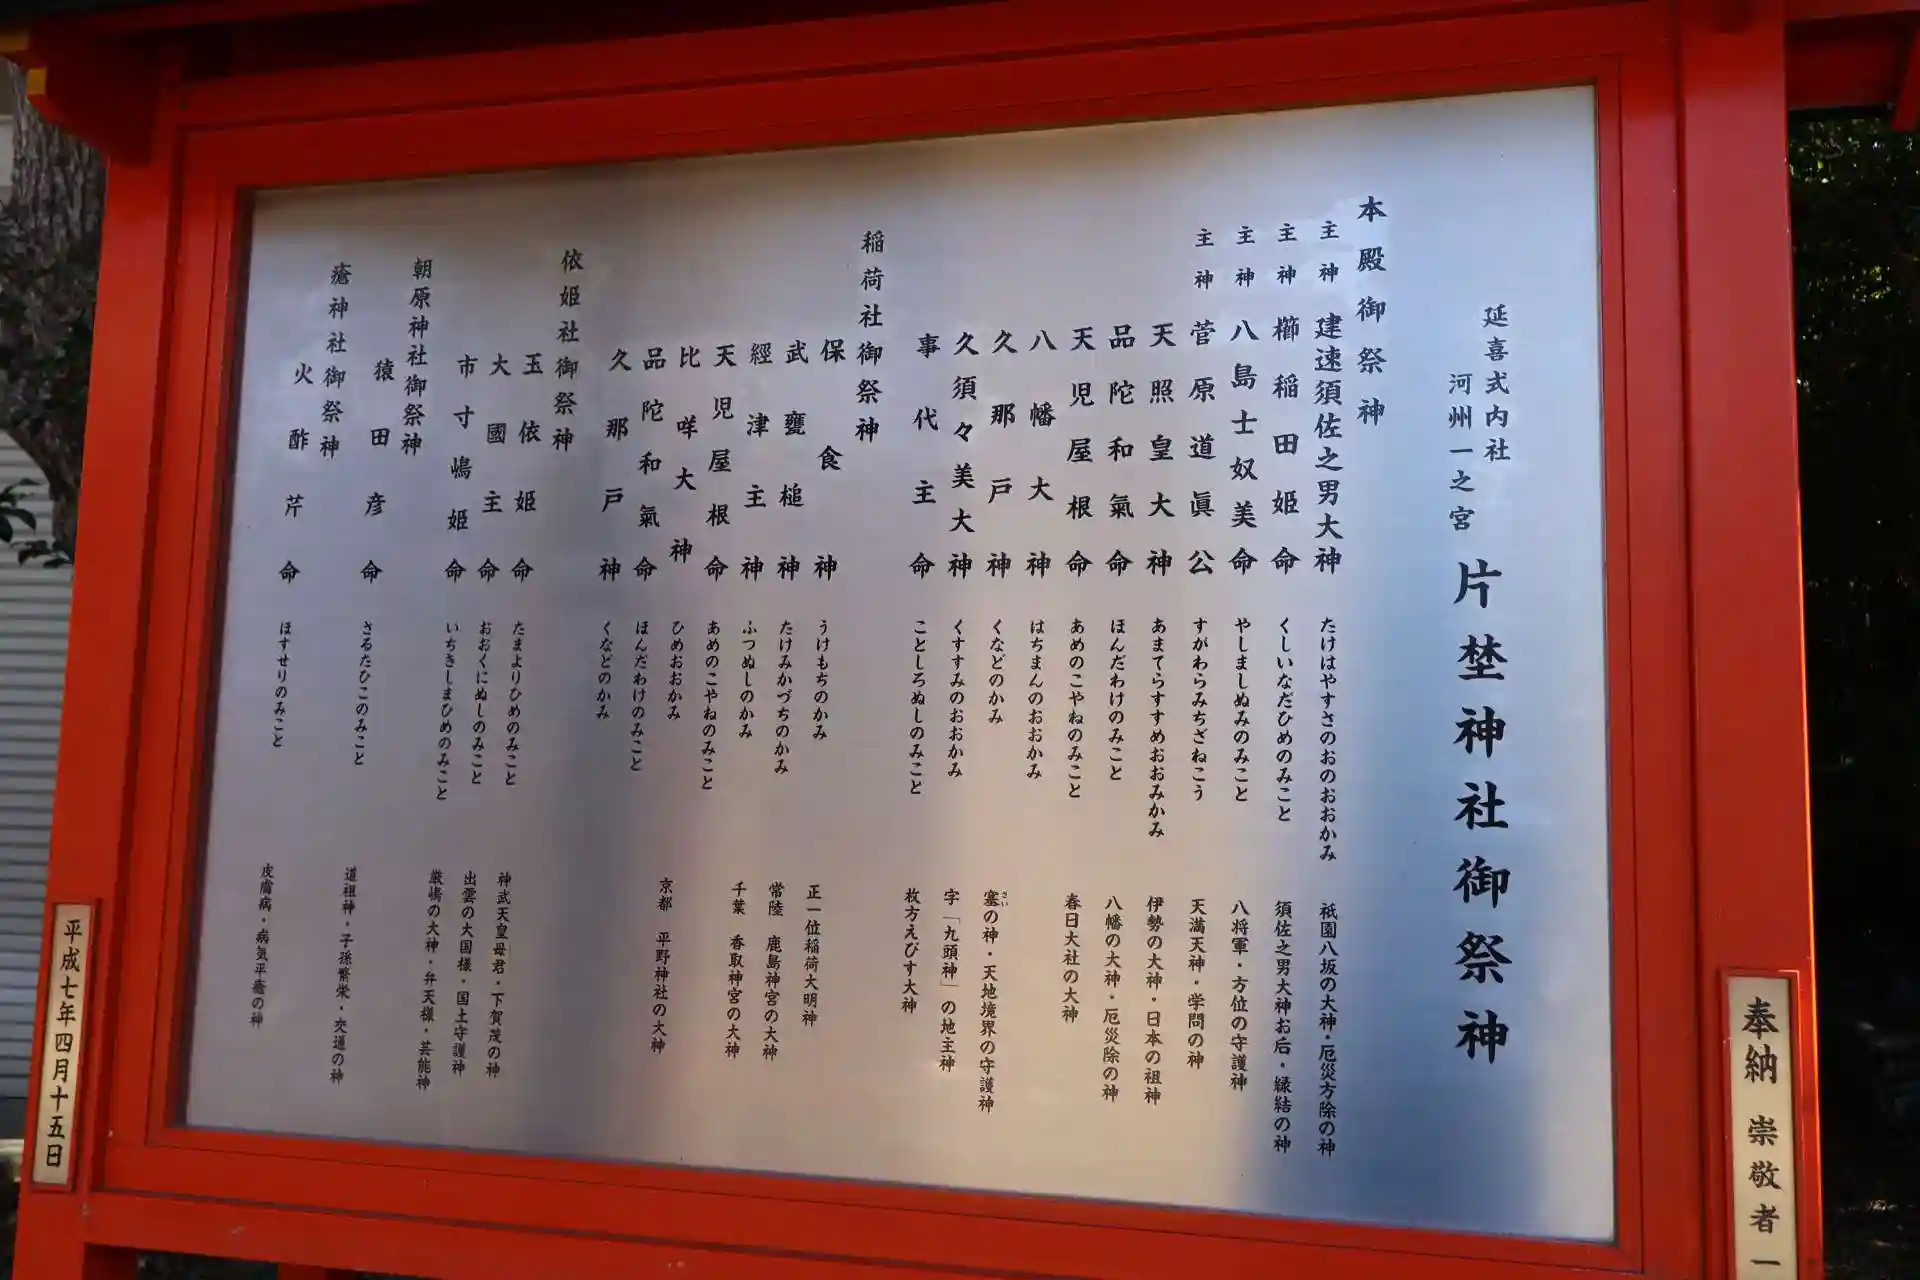 延喜式内社
河州一之宮
片埜神社御祭神
本殿御祭神
主神 建速須佐之男大神 たけはやすさのおのおおかみ 祇園八坂の大神・厄災方除の神
主神 櫛稲田姫命 くしいなだひめのみこと 須佐之男大神お后・縁結の神
主神 八島士奴美命 やしましぬみのみこと 八将軍・方位の守護神
主神 菅原道眞公 すがわらみちざねこう 天満天神・学問の神
天照皇大神 あまてらすすめおおみかみ 伊勢の大神・日本の祖神
品陀和氣命 ほんだわけのみこと 八幡の大神・厄災除の神
天児屋根命 あめのこやねのみこと 春日大社の大神
八幡大神 はちまんのおおかみ
久那戸神 くなどのかみ 塞の神・天地境界の守護神
さい
久須々美大神 くすすみのおおかみ 字「九頭神」の地主神
事代主命 ことしろぬしのみこと 枚方えびす大神
稲荷社御祭神
保食神 うけもちのかみ 正一位稲荷大明神
武甕槌神 たけみかづちのかみ 常陸 鹿島神宮の大神
經津主神 ふつぬしのかみ 千葉 香取神宮の大神
天児屋根命 あめのこやねのみこと
比咩大神 ひめおおかみ 京都 平野神社の大神
品陀和氣命 ほんだわけのみこと
久那戸神 くなどのかみ
依姫社御祭神
玉依姫命 たまよりひめのみこと 神武天皇母君・下賀茂の神
大國主命 おおくにぬしのみこと 出雲の大国様・国土守護神
市寸嶋姫命 いちきしまひめのみこと 厳嶋の大神・弁天様・芸能神
朝原神社御祭神
猿田彦命 さるたひこのみこと 道祖神・子孫繁栄・交通の神
瘡神社御祭神
火酢芹命 ほすせりのみこと 皮膚病・病気平癒の神
奉納 崇敬者一
平成七年四月十五日